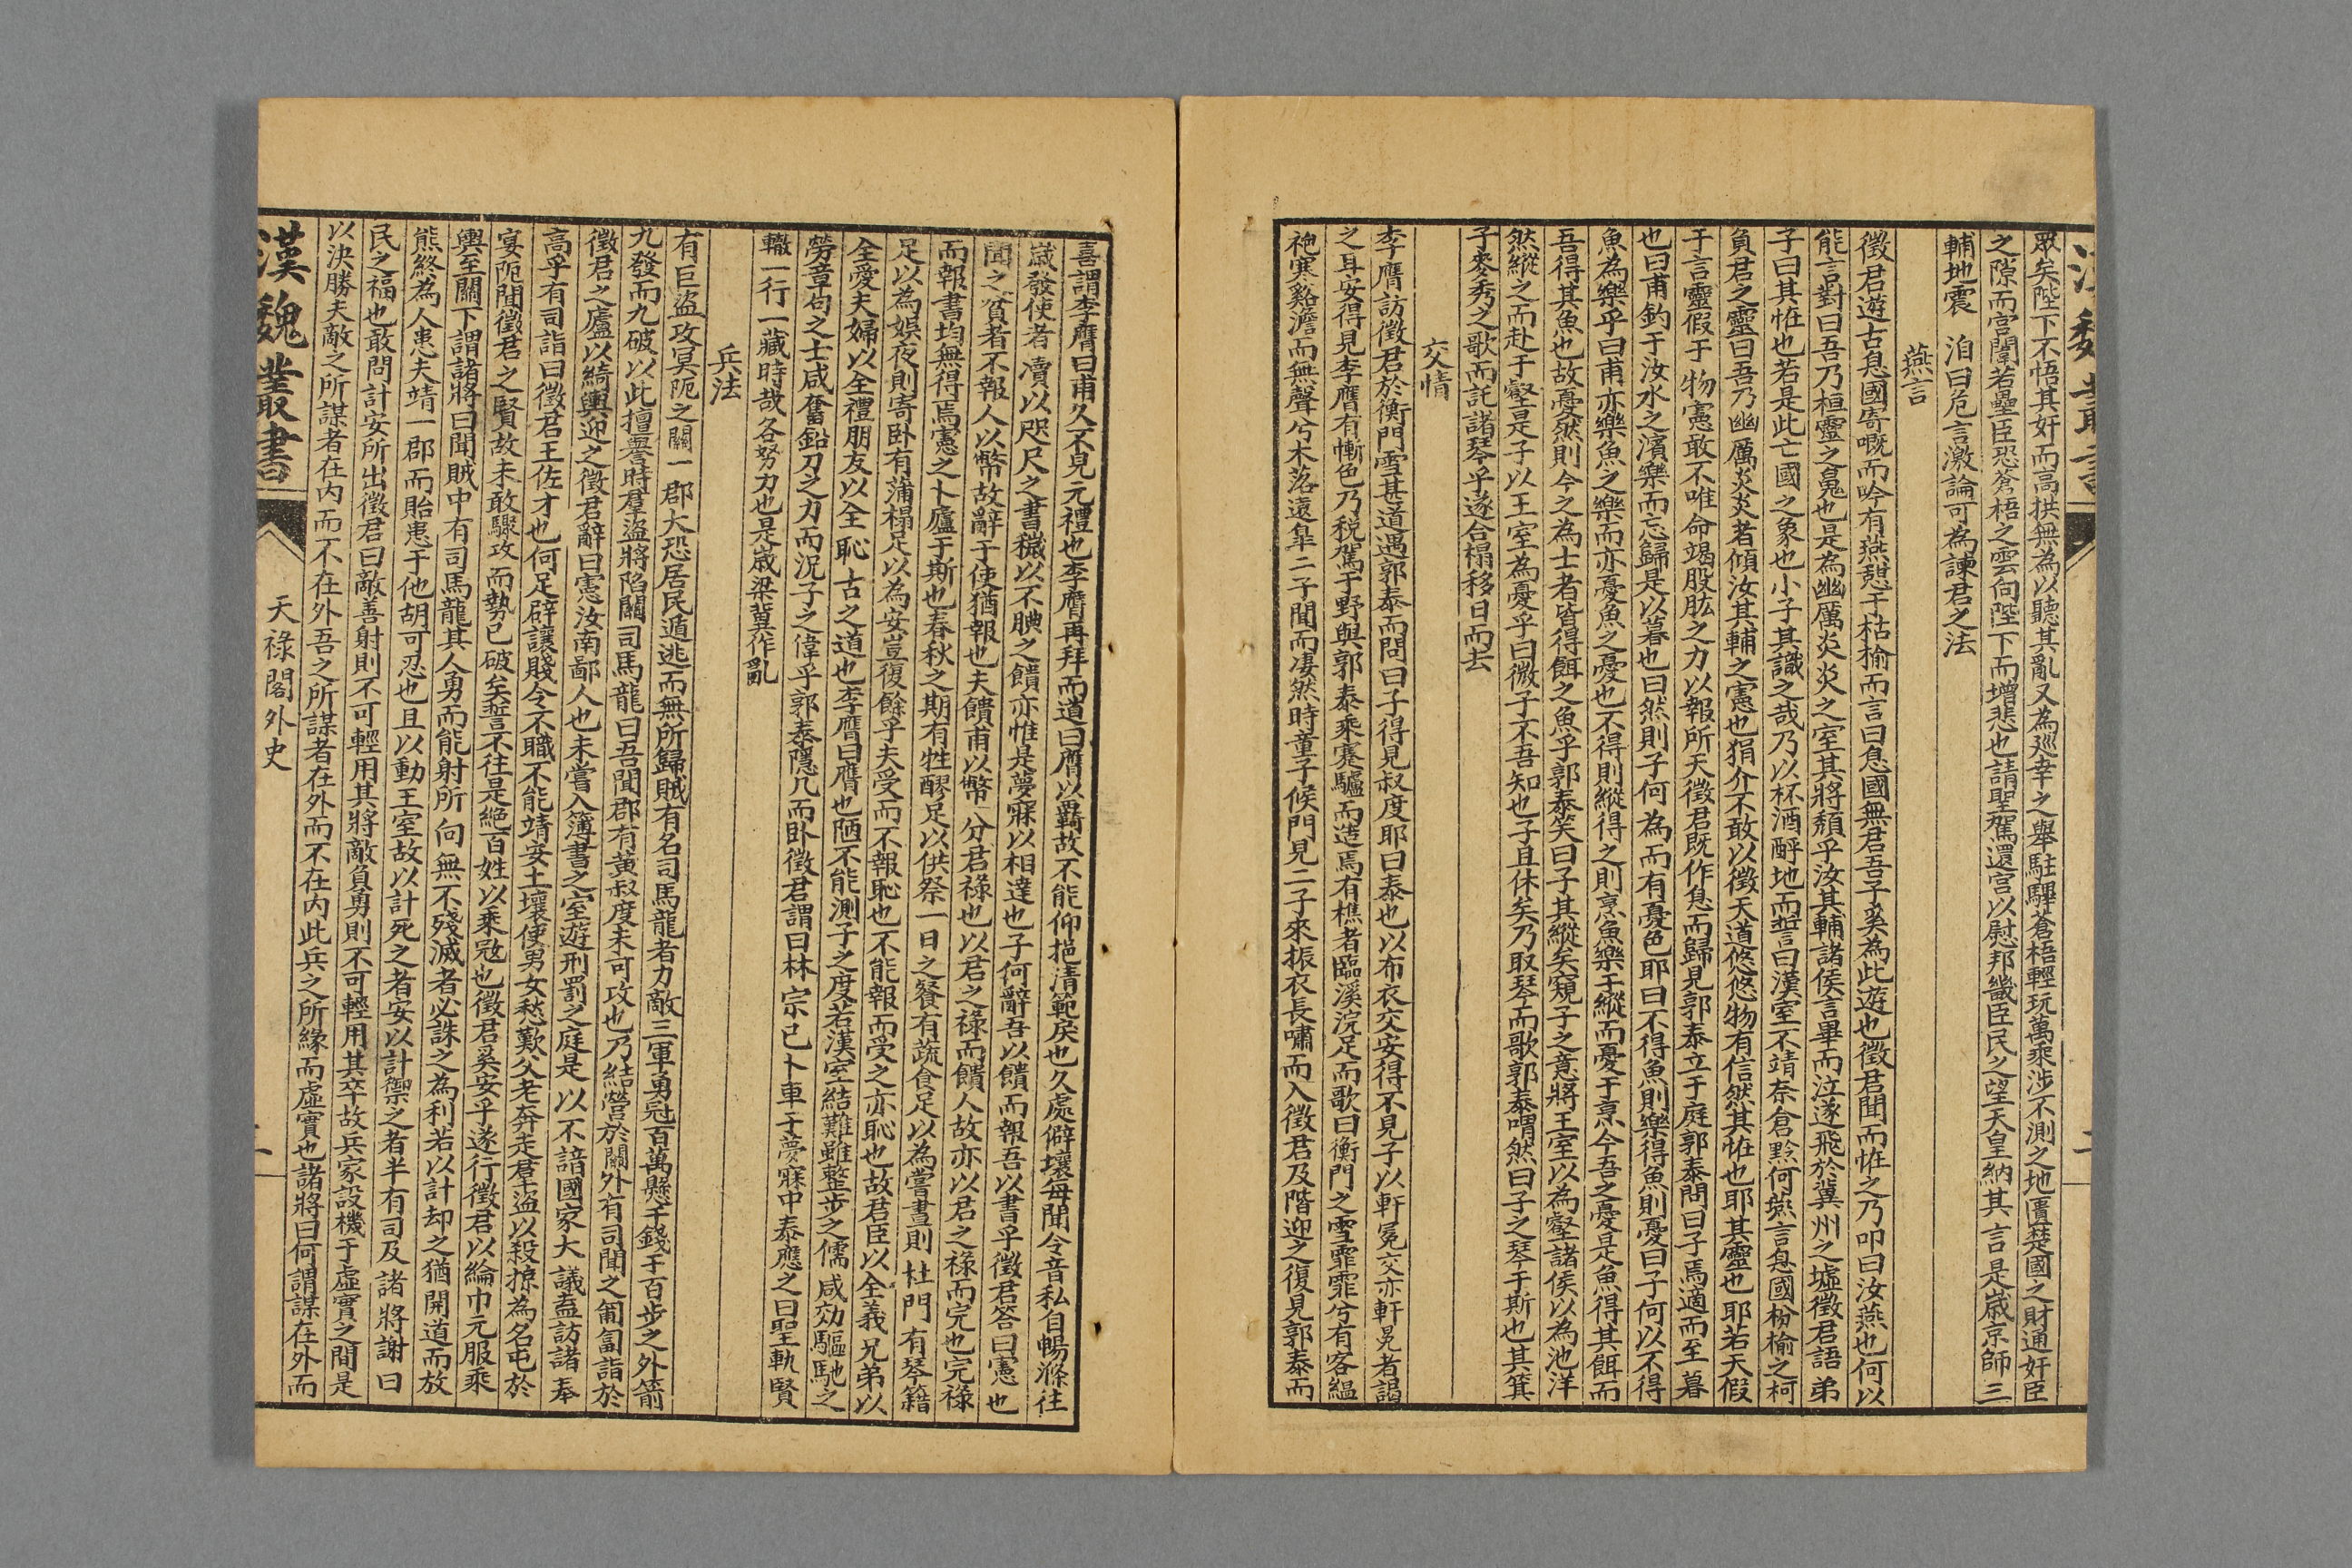 漢魏叢書
衆矣陛下不悟其奸而高拱無為以聽其亂又為巡幸之舉駐驆蒼梧輕玩萬乘涉不測之地匱楚國之財通奸臣
之隙而宮闈若壘臣恐蒼梧之雲向陛下而增悲也請聖駕還宮以慰邦畿臣民之望天皇納其言是歲京師三
輔地震　洎曰危言激論可為諫君之法
燕言
徵君遊古息國寄嘅而吟有燕憩于枯榆而言曰息國無君吾子奚為此遊也徵君聞而恠之乃叩曰汝燕也何以
能言對曰吾乃桓靈之䰟也是為幽厲炎炎之室其將頹乎汝其輔諸侯言畢而泣遂飛於冀州之墟徵君語弟
子曰其恠也若是此亡國之象也小子其識之哉乃以杯酒酹地而誓曰漢室不靖奈倉黔何燕言息國枌榆之柯
負君之靈曰吾乃幽厲炎炎者傾汝其輔之憲也狷介不敢以徵天道悠悠物有信然其恠也耶其靈也耶若天假
于言靈假于物憲敢不唯命竭股肱之力以報所天徵君既作息而歸見郭泰立于庭郭泰問曰子焉適而至暮
也曰甫釣于汝水之濱樂而忘歸是以暮也曰然則子何為而有憂色耶曰不得魚則樂得魚則憂曰子何以不得
魚為樂乎曰甫亦樂魚之樂而亦憂魚之憂也不得則縱得之則烹魚樂于縱而憂于烹今吾之憂是魚得其餌而
吾得其魚也故憂然則今之為士者皆得餌之魚乎郭泰笑曰子其縱矣䂓子之意將王室以為壑諸侯以為池洋
然縱之而赴于壑是子以王室為憂乎曰微子不吾知也子且休矣乃取琴而歌郭泰喟然曰子之琴于斯也其箕
子麥秀之歌而託諸琴乎遂合榻移日而去
交情
李膺訪徵君於衡門雪甚道遇郭泰而問曰子得見叔度耶曰泰也以布衣交安得不見子以軒冕交亦軒冕者謁
之耳安得見李膺有慚色乃稅駕于野與郭泰乘蹇驢而造焉有樵者臨溪浣足而歌曰衡門之雪霏霏兮有客縕
袍寒谿澹而無聲兮木落遠皐二子聞而凄然時童子候門見二子來振衣長嘯而入徵君及階迎之復見郭泰而
喜謂李膺曰甫久不見元禮也李膺再拜而道曰膺以羇故不能仰挹清範戾也久處僻壤每聞令音私自暢滌往
歲發使者瀆以咫尺之書穢以不腆之饋亦惟是夢寐以相達也子何辭吾以饋而報吾以書乎徵君答曰憲也
聞之貧者不報人以幣故辭于使猶報也夫饋甫以幣分君祿也以君之祿而饋人故亦以君之祿而完也完祿
而報書均無得焉憲之卜廬于斯也春秋之期有牲醪足以供祭一日之餐有蔬食足以為嘗晝則杜門有琴籍
足以為娛夜則寄卧有蒲榻足以為安豈復餘乎夫受而不報恥也不能報而受之亦恥也故君臣以全義兄弟以
全愛夫婦以全禮朋友以全恥古之道也李膺曰膺也陋不能測子之度若漢室結難雖整步之儒咸効驅馳之
勞章句之士咸奮鉛刀之力而況子之偉乎郭泰隱几而卧徵君謂曰林宗已卜車于夢寐中泰應之曰聖軌賢
轍一行一藏時哉各努力也是歲梁冀作亂
兵法
有巨盜攻冥阨之關一郡大恐居民遁逃而無所歸賊有名司馬龍者力敵三軍勇冠百萬懸千錢于百步之外箭
九發而九破以此擅譽時羣盜將陷關司馬龍曰吾聞郡有黃叔度未可攻也乃結營於關外有司聞之匍匐詣於
徵君之廬以綺輿迎之徵君辭曰憲汝南鄙人也未嘗入簿書之室遊刑罰之庭是以不諳國家大議盍訪諸奉
高乎有司詣曰徵君王佐才也何足辟讓賤令不職不能靖安土壤使男女愁歎父老奔走羣盜以殺掠為名屯於
宴阨聞徵君之賢故未敢驟攻而勢已破矣誓不往是絕百姓以乘冦也徵君奚安乎遂行徵君以綸巾元服乘
輿至關下謂諸將曰聞賊中有司馬龍其人勇而能射所向無不殘滅者必誅之為利若以計却之猶開道而放
熊終為人患夫靖一郡而貽患于他胡可忍也且以動王室故以計死之者安以計禦之者半有司及諸將謝曰
民之福也敢問計安所出徵君曰敵善射則不可輕用其將敵負勇則不可輕用其卒故兵家設機于虛實之間是
以決勝夫敵之所謀者在內而不在外吾之所謀者在外而不在內此兵之所緣而虛實也諸將曰何謂謀在外而
漢魏叢書
天祿閣外史